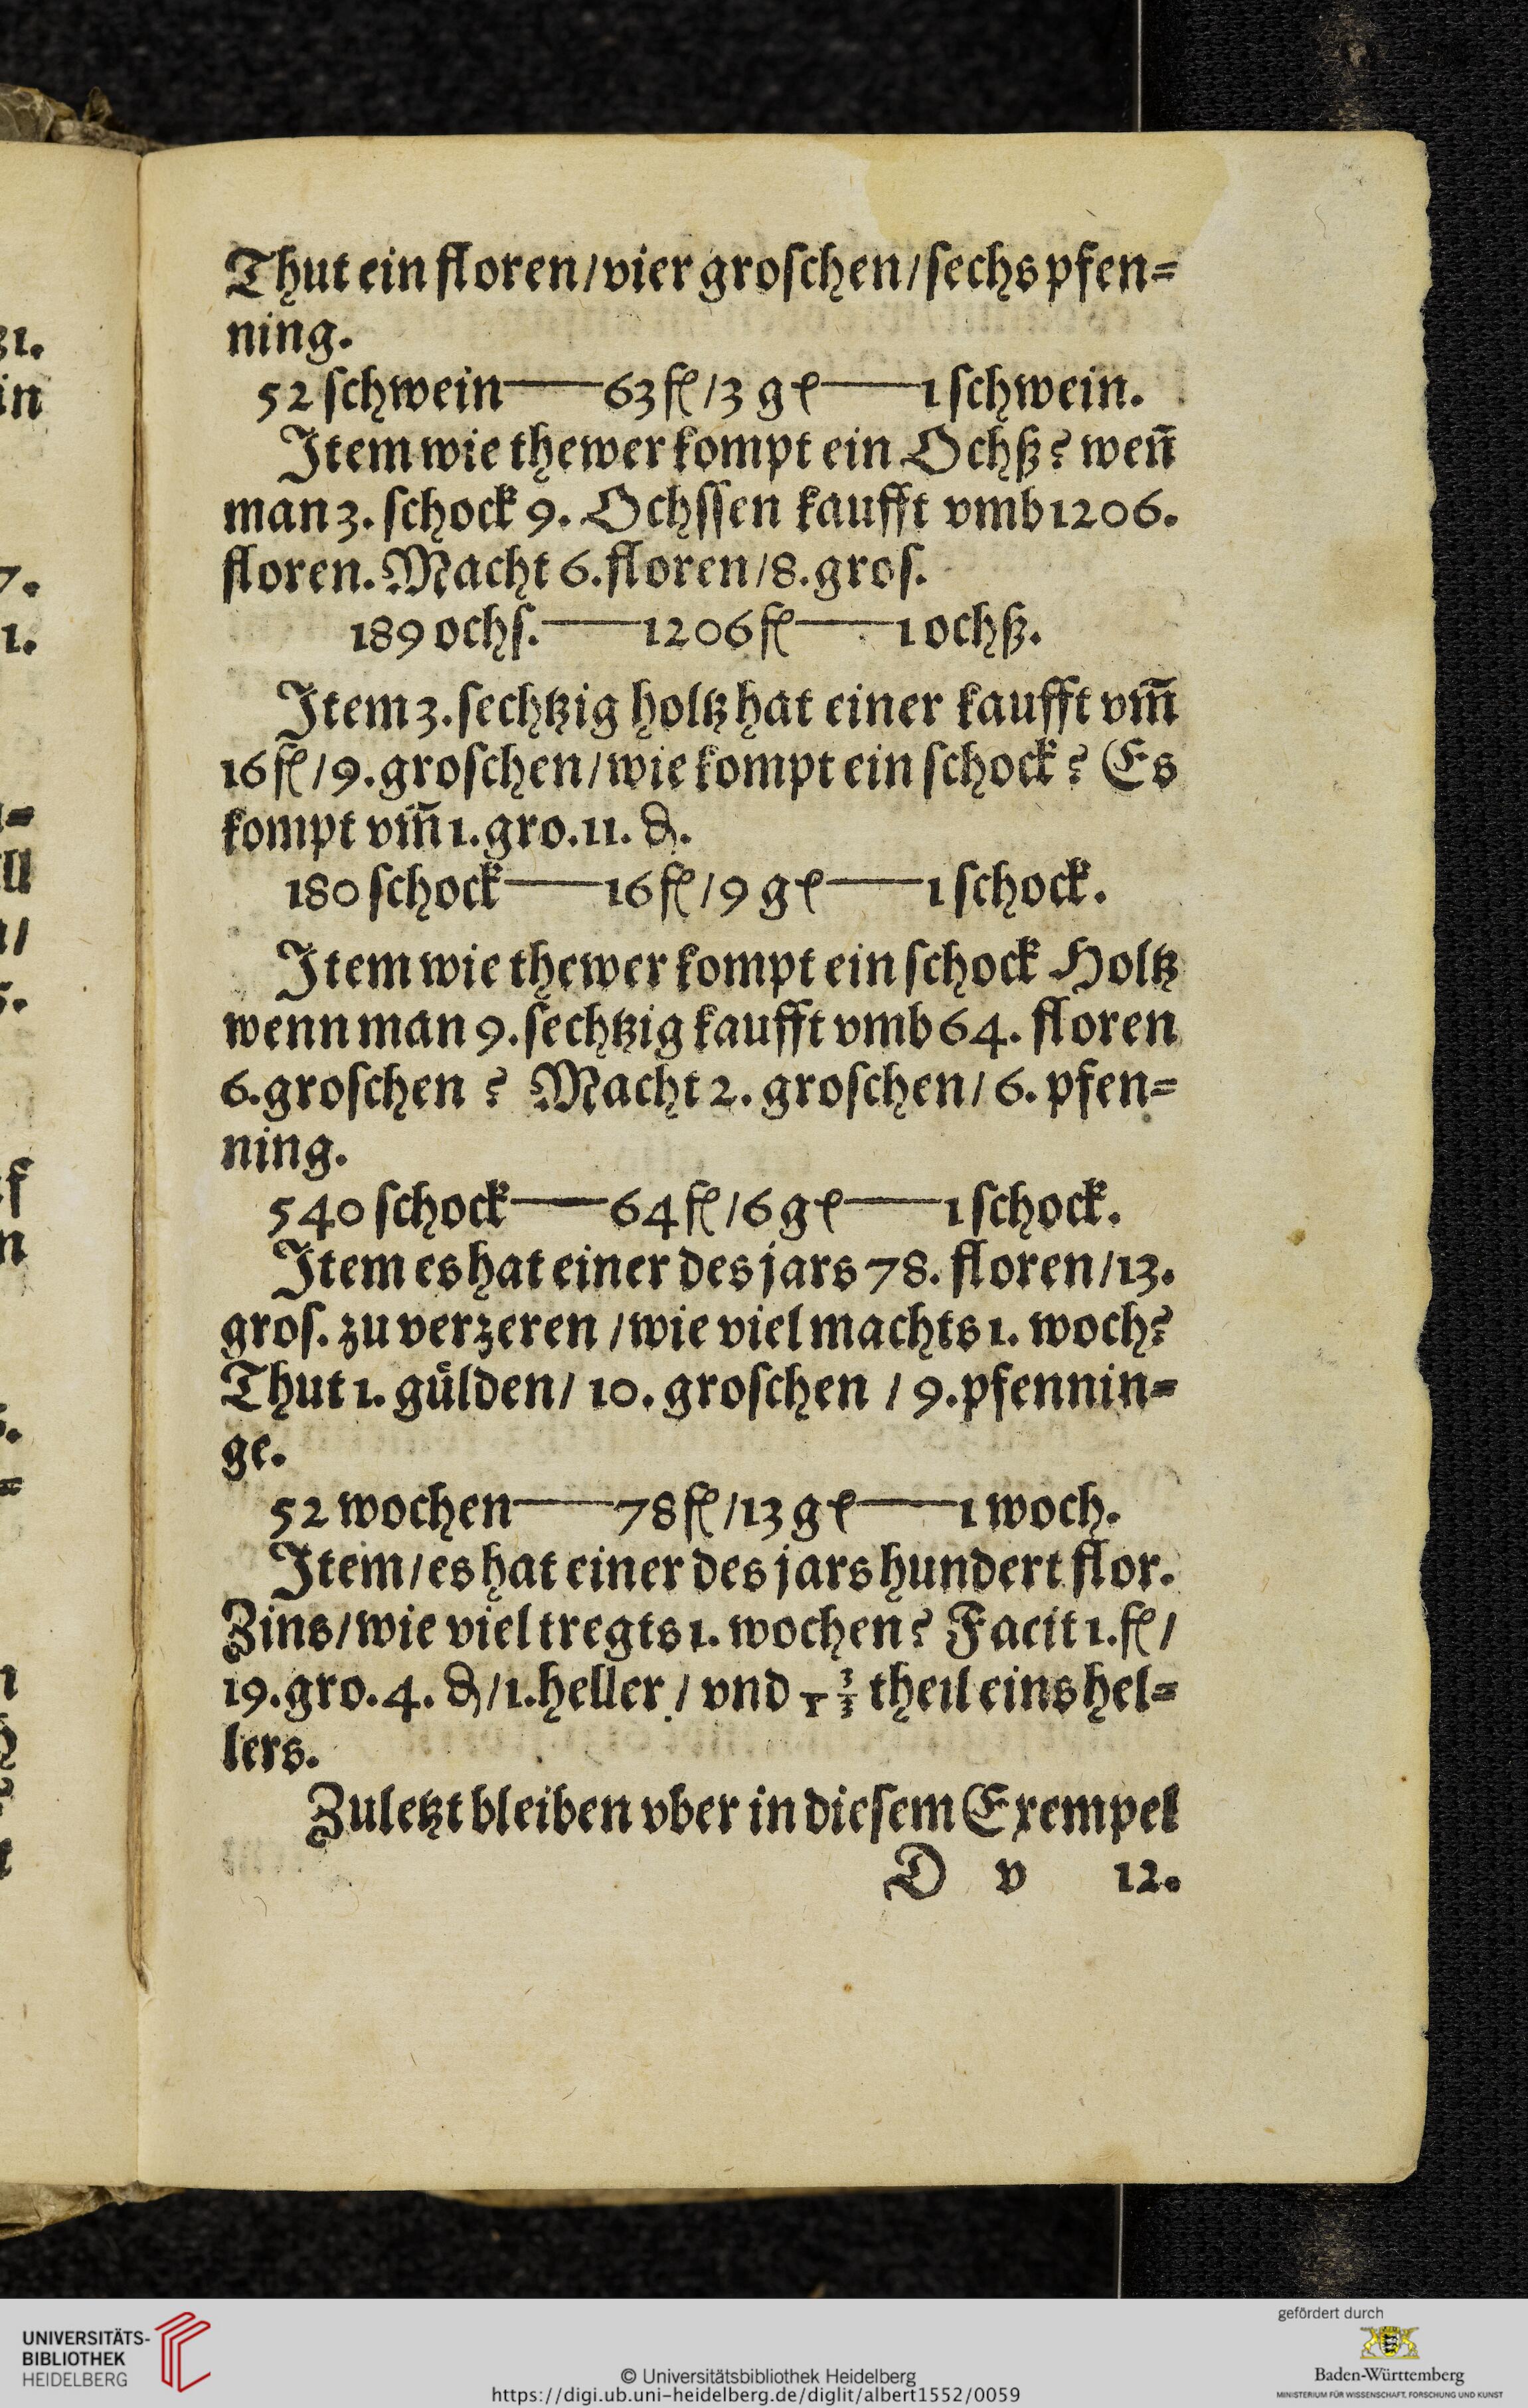 Thut ein floren / vier groschen / sechs pfen=
ning.
52 schwein——63 fl / 3 gl——1 schwein.
Item wie thewer kompt ein Ochß? weñ
man 3. schock 9. Ochssen kaufft vmb 1206.
floren. Macht 6. floren / 8. gros.
189 ochs.——1206 fl——1 ochß.
Item 3. sechtzig holtz hat einer kaufft vm̃
16 fl / 9. groschen / wie kompt ein schock? Es
kompt vm̃ 1. gro. 11. ₰.
180 schock——16 fl / 9 gl——1 schock.
Item wie thewer kompt ein schock Holtz
wenn man 9. sechtzig kaufft vmb 64. floren
6. groschen? Macht 2. groschen / 6. pfen=
ning.
540 schock——64 fl / 6 gl——1 schock.
Item es hat einer des jars 78. floren / 13.
gros. zu verzeren / wie viel machts 1. woch?
Thut 1. gülden / 10. groschen / 9. pfennin=
ge.
52 wochen——78 fl / 13 gl——1 woch.
Item / es hat einer des jars hundert flor.
Zins / wie viel tregts 1. wochen? Facit 1. fl /
19. gro. 4. ₰ / 1. heller / vnd theil eins hel=
lers.
Zuletzt bleiben vber in diesem Exempel
D v 12.
UNIVERSITÄTS-
BIBLIOTHEK
HEIDELBERG
© Universitätsbibliothek Heidelberg
https://digi.ub.uni-heidelberg.de/diglit/albert1552/0059
gefördert durch
Baden-Württemberg
MINISTERIUM FÜR WISSENSCHAFT, FORSCHUNG UND KUNST